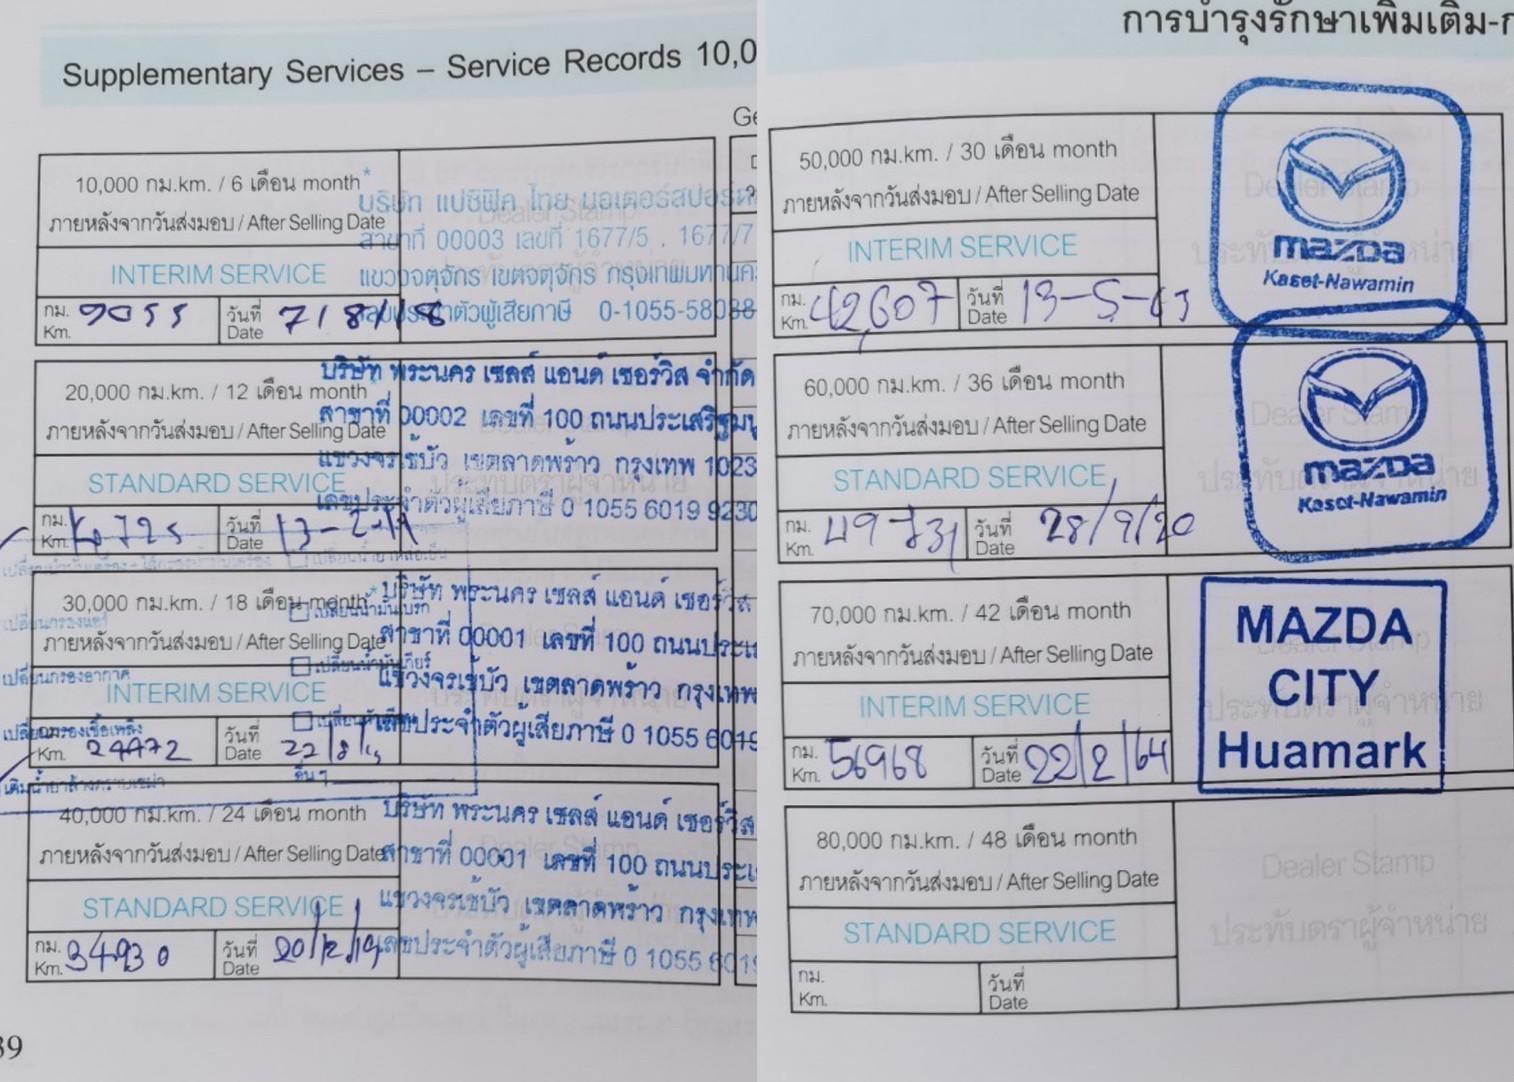 Supplementary Services – Service Records 10,0
Ge
10,000 กม.km. / 6 เดือน month*
ภายหลังจากวันส่งมอบ / After Selling Date
INTERIM SERVICE
กม.
Km. 9055
วันที่
Date 7/8/18
บริษัท แปซิฟิค ไทย มอเตอร์สปอร์ต
สาขาที่ 00003 เลขที่ 1677/5 . 1677/7
แขวงจตุจักร เขตจตุจักร กรุงเทพมหานค
เลขประจำตัวผู้เสียภาษี 0-1055-58038
20,000 กม.km. / 12 เดือน month
ภายหลังจากวันส่งมอบ / After Selling Date
STANDARD SERVICE
กม.
Km.
วันที่
Date
บริษัท พระนคร เซลส์ แอนด์ เซอร์วิส จำกัด
สาขาที่ 00002 เลขที่ 100 ถนนประเสริฐมนู
แขวงจรเข้บัว เขตลาดพร้าว กรุงเทพ 1023
เลขประจำตัวผู้เสียภาษี 0 1055 6019 9230
30,000 กม.km. / 18 เดือน month*
ภายหลังจากวันส่งมอบ / After Selling Date
INTERIM SERVICE
กม.
Km. 24472
วันที่
Date 22/8/
เปลี่ยนน้ำมันเบรก
เปลี่ยนกรองแอร์
เปลี่ยนน้ำมันเกียร์
เปลี่ยนกรองอากาศ
เปลี่ยนกรองเชื้อเพลิง
อื่นๆ
บริษัท พระนคร เซลส์ แอนด์ เซอร์วิส
สาขาที่ 00001 เลขที่ 100 ถนนประเ
แขวงจรเข้บัว เขตลาดพร้าว กรุงเทพ
เลขประจำตัวผู้เสียภาษี 0 1055 6019
40,000 กม.km. / 24 เดือน month
ภายหลังจากวันส่งมอบ / After Selling Date
STANDARD SERVICE
กม.
Km. 34930
วันที่
Date 20/12/19
บริษัท พระนคร เซลส์ แอนด์ เซอร์วิส
สาขาที่ 00001 เลขที่ 100 ถนนประเ
แขวงจรเข้บัว เขตลาดพร้าว กรุงเทพ
เลขประจำตัวผู้เสียภาษี 0 1055 6019
39
การบำรุงรักษาเพิ่มเติม-ก
50,000 กม.km. / 30 เดือน month
ภายหลังจากวันส่งมอบ / After Selling Date
INTERIM SERVICE
กม.
Km. 42,607
วันที่
Date 13-5-63
Dealer Stamp
ประทับตราผู้จำหน่าย
mazda
Kaset-Nawamin
60,000 กม.km. / 36 เดือน month
ภายหลังจากวันส่งมอบ / After Selling Date
STANDARD SERVICE
กม.
Km. 49731
วันที่
Date 28/9/20
Dealer Stamp
ประทับตราผู้จำหน่าย
mazda
Kaset-Nawamin
70,000 กม.km. / 42 เดือน month
ภายหลังจากวันส่งมอบ / After Selling Date
INTERIM SERVICE
กม.
Km. 56968
วันที่
Date 22/2/64
Dealer Stamp
ประทับตราผู้จำหน่าย
MAZDA
CITY
Huamark
80,000 กม.km. / 48 เดือน month
ภายหลังจากวันส่งมอบ / After Selling Date
STANDARD SERVICE
กม.
Km.
วันที่
Date
Dealer Stamp
ประทับตราผู้จำหน่าย